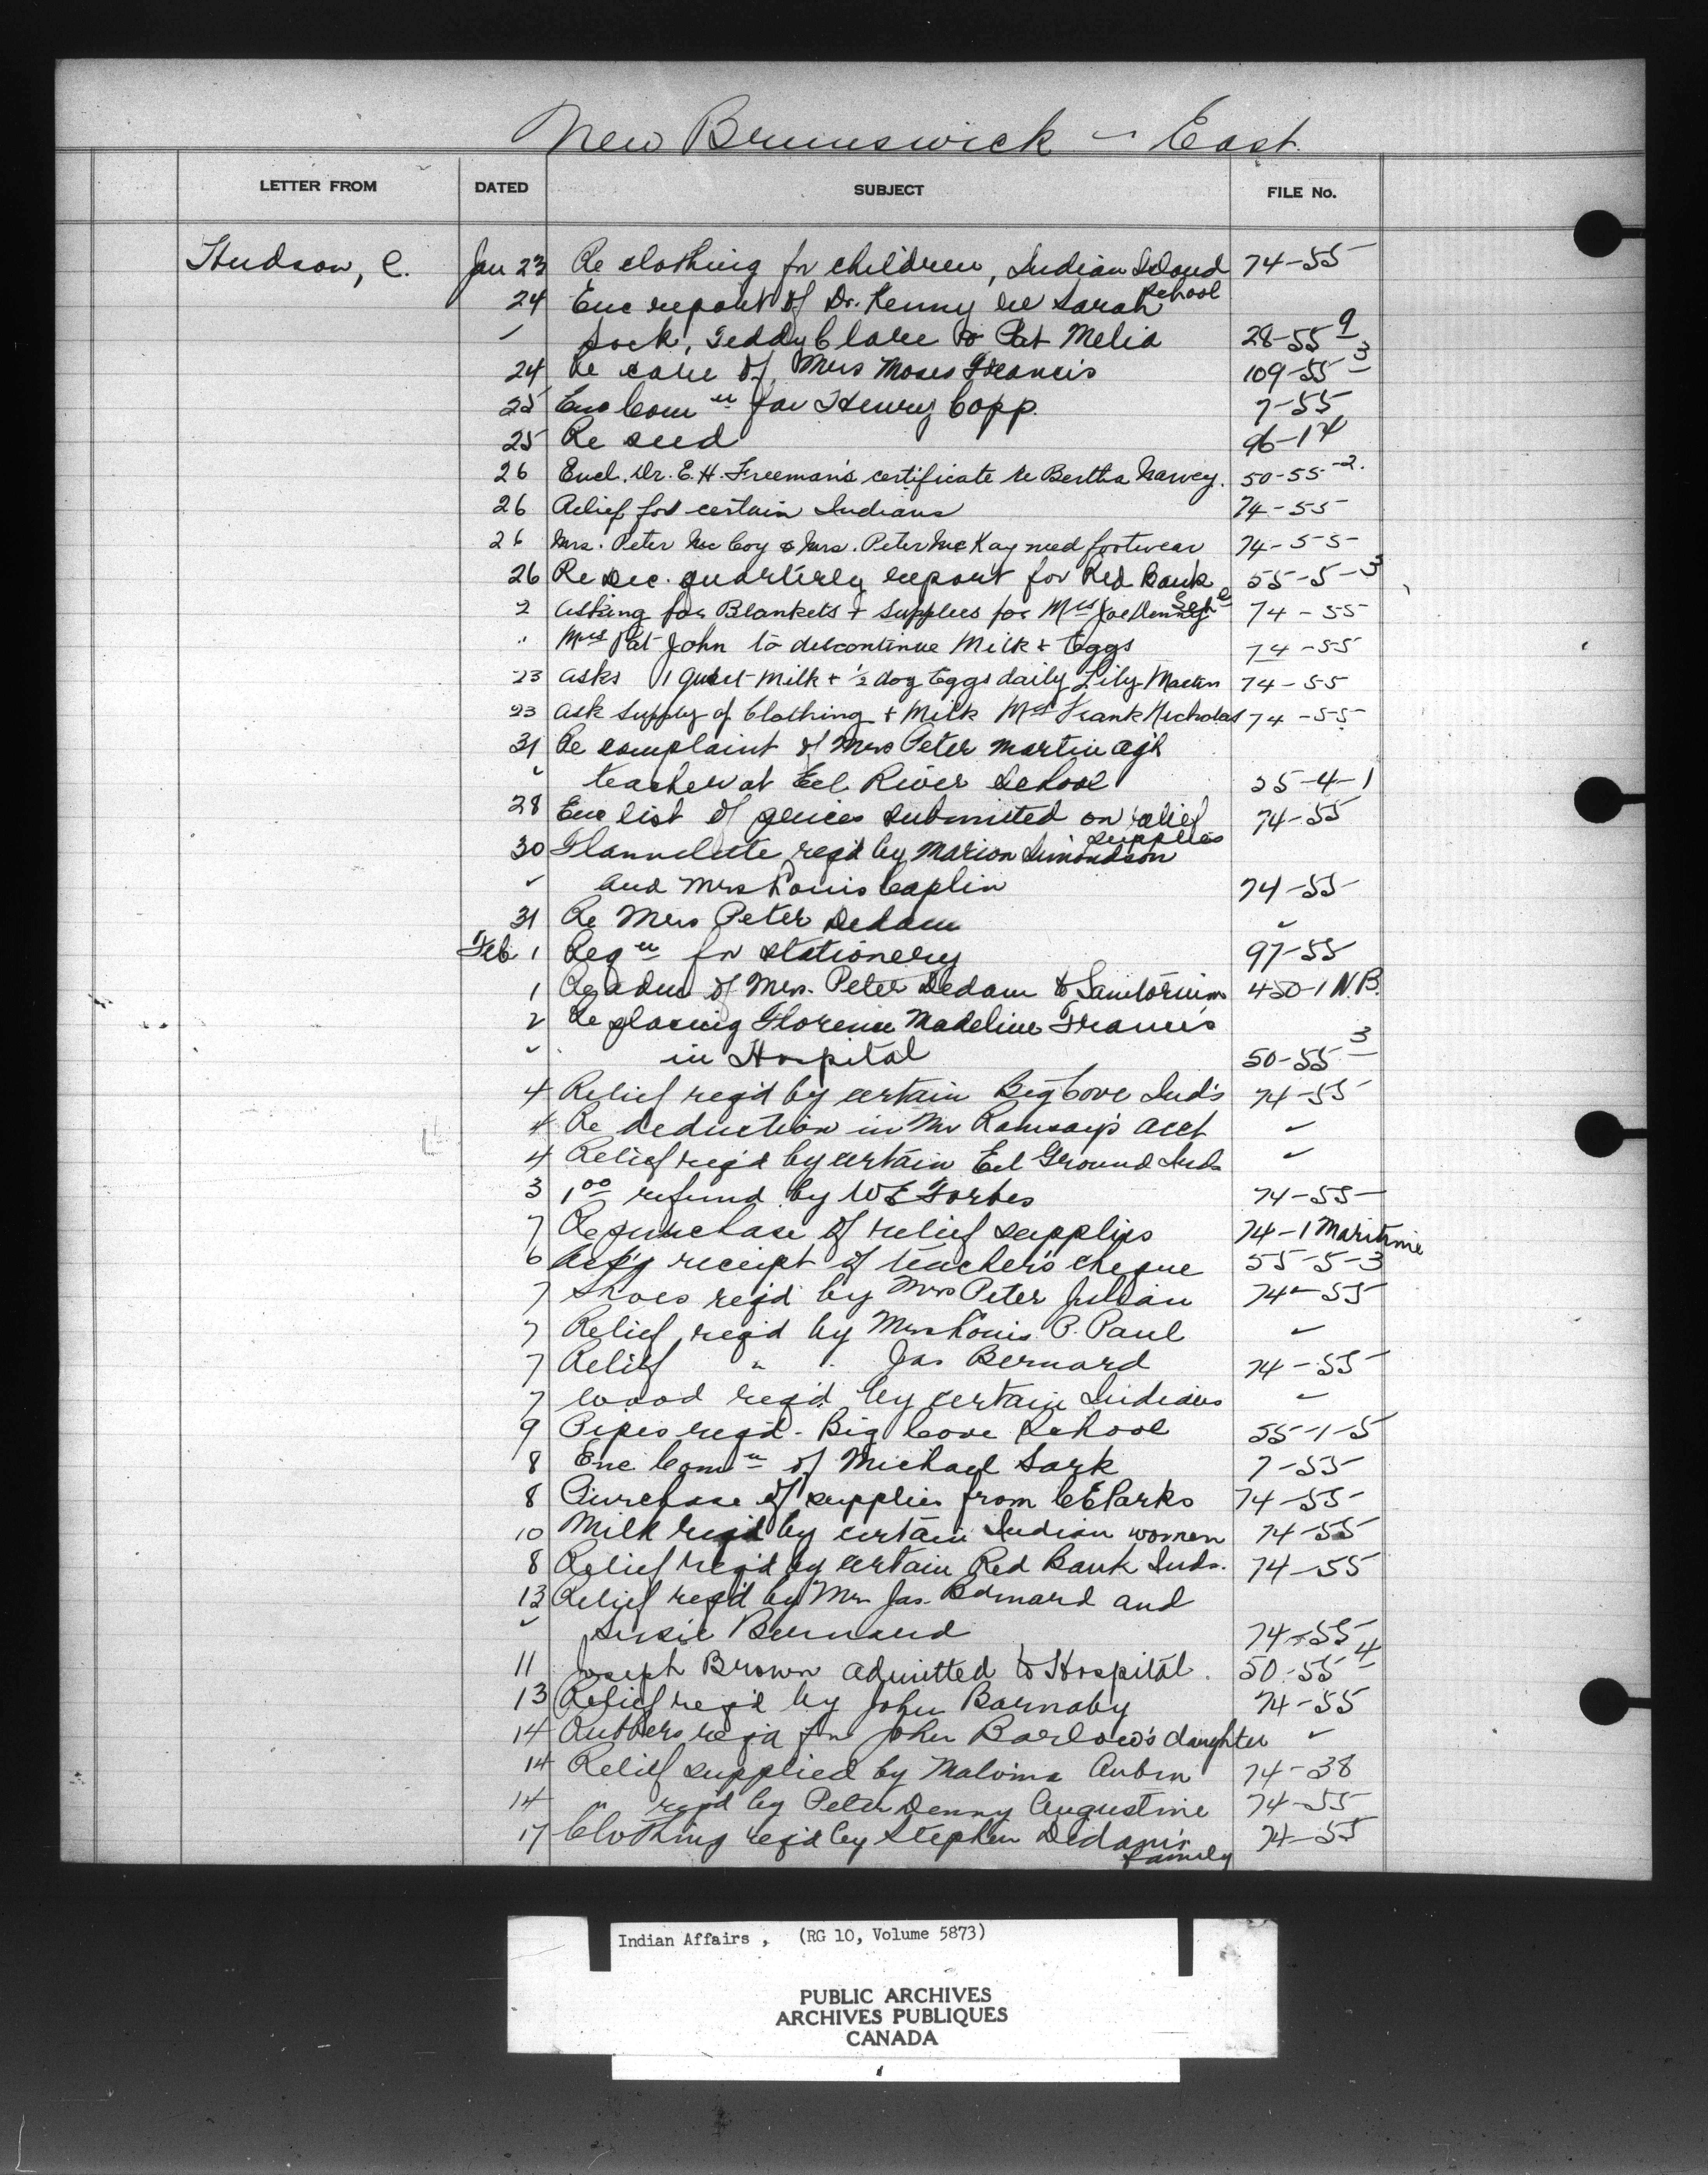 New Brunswick - East.
LETTER FROM DATED SUBJECT FILE No.
Hudson, C. Jan 23 Re clothing for children, Indian Island School 74-55
24 Enc report of Dr. Kenny re Sarah
" Sock, Teddy Clare & Pat Melia 28-55 9
24 Re care of Mrs Moses Francis 109-55 3
25 Enc Com n for Henry Copp. 7-55
25 Re seed 96-14
26 Encl. Dr. E.H. Freeman's certificate re Bertha Narvey. 50-55-2.
26 Relief for certain Indians 74-55
26 Mrs. Peter McCoy & Mrs. Peter McKay need footwear 74-55
26 Re Dec. quarterly report for Red Bank 55-5-3
2 Asking for Blankets + Supplies for Mrs Joe Denny 74-55
" Mrs Pat John to discontinue Milk + Eggs 74-55
23 asks 1 quart Milk + ½ doz Eggs daily Lily Martin 74-55
23 ask Supply of Clothing + Milk Mrs Frank Nicholas 74-55
31 Re complaint of Mrs Peter Martin ag't
" teacher at Eel River School 55-4-1
28 Enc list of prices submitted on relief supplies 74-55
30 Flannelette req'd by Marion Simondson
" and Mrs Louis Caplin 74-55
31 Re Mrs Peter Dedam "
Feb. 1 Reqn for stationery 97-55
1 Re adm of Mrs. Peter Dedam to Sanitorium 450-1 N.B.
2 Re placing Florence Madeline Francis
" in Hospital 50-55 3
4 Relief req'd by certain Big Cove Ind's 74-55
4 Re deduction in Mr Ramsay's acct "
4 Relief req'd by certain Eel Ground Inds "
3 1 00 refund by W E Forbes 74-55
7 Re purchase of relief supplies 74-1 Maritime
6 Ack'g receipt of teacher's cheque 55-5-3
7 Shoes req'd by Mrs Peter Julian 74-55
7 Relief req'd by Mrs Louis P. Paul "
7 Relief " " Jas Bernard 74-55
7 Wood req'd by certain Indians "
9 Pipes req'd - Big Cove School 55-1-5
8 Enc Com n of Michael Sark 7-55
8 Purchase of supplies from C E Parks 74-55
10 Milk req'd by certain Indian women 74-55
8 Relief req'd by certain Red Bank Inds. 74-55
13 Relief req'd by Mrs Jas. Bernard and
" Susie Bernard 74-55
11 Joseph Brown admitted to Hospital. 50-55 4
13 Relief req'd by John Barnaby 74-55
14 Rubbers req'd for John Barlow's daughter "
14 Relief supplied by Malvina Aubin 74-38
14 " req'd by Peter Denny Augustine 74-55
17 Clothing req'd by Stephen Dedam's family 74-55
Indian Affairs , (RG 10, Volume 5873)
PUBLIC ARCHIVES
ARCHIVES PUBLIQUES
CANADA